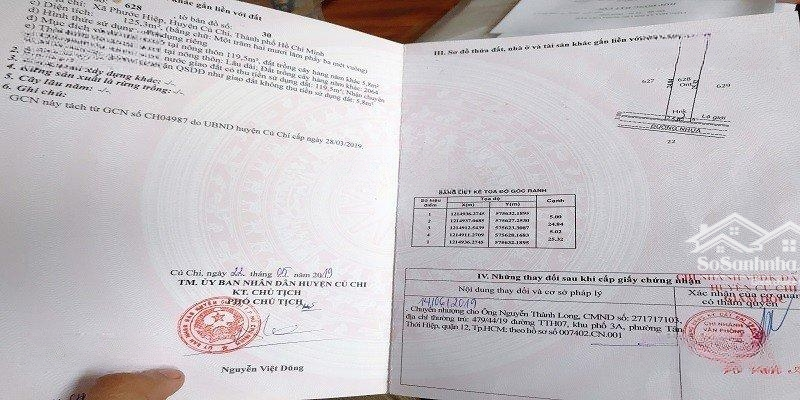 628
30
khác gắn liền với đất
chỉ: Xã Phước Hiệp, huyện Củ Chi, Thành phố Hồ Chí Minh
c) Diện tích: 125,3m² (bằng chữ: Một trăm hai mươi lăm phẩy ba mét vuông)
d) Hình thức sử dụng: riêng
đ) Mục đích
tại nông thôn 119,5m², đất trồng cây hàng năm khác 5,8m²
tại nông thôn: Lâu dài; Đất trồng cây hàng năm khác: 2064
nước giao đất có thu tiền sử dụng đất: 119,5m²; Nhận chuyển
QSDĐ như giao đất không thu tiền sử dụng đất: 5,8m²
xây dựng khác: -/-
4. Rừng sản xuất là rừng trồng: -/-
5. Cây lâu năm: -/-
6. Ghi chú:
GCN này tách từ GCN số CH04987 do UBND huyện Củ Chi cấp ngày 28/03/2019.
Củ Chi, ngày 22 tháng 05 năm 2019
TM. ỦY BAN NHÂN DÂN HUYỆN CỦ CHI
KT. CHỦ TỊCH
PHÓ CHỦ TỊCH
Nguyễn Việt Dũng
III. Sơ đồ thửa đất, nhà ở và tài sản khác gắn liền với đất
627
628
629
Hnk
Lộ giới
ĐƯỜNG NHỰA
22
BẢNG LIỆT KÊ TỌA ĐỘ GÓC RANH
Số hiệu điểm
Tọa độ
Cạnh
X(m)
Y(m)
1 1214936.2745 575632.1895
5.00
2 1214937.0685 575627.2530
24.84
3 1214912.5439 575623.3087
5.02
4 1214911.2709 575628.1683
25.32
1214936.2745 575632.1895
IV. Những thay đổi sau khi cấp giấy chứng nhận
Nội dung thay đổi và cơ sở pháp lý
Xác nhận của cơ quan
có thẩm quyền
14/06/2019
Chuyển nhượng cho Ông Nguyễn Thành Long, CMND số: 271717103,
địa chỉ thường trú: 479/44/19 đường TTH07, khu phố 3A, phường Tân
Thới Hiệp, quận 12, Tp.HCM; theo hồ sơ số 007402.CN.001
HUYỆN CỦ CHI
CHI NHÁNH
VĂN PHÒNG
SoSanhNha